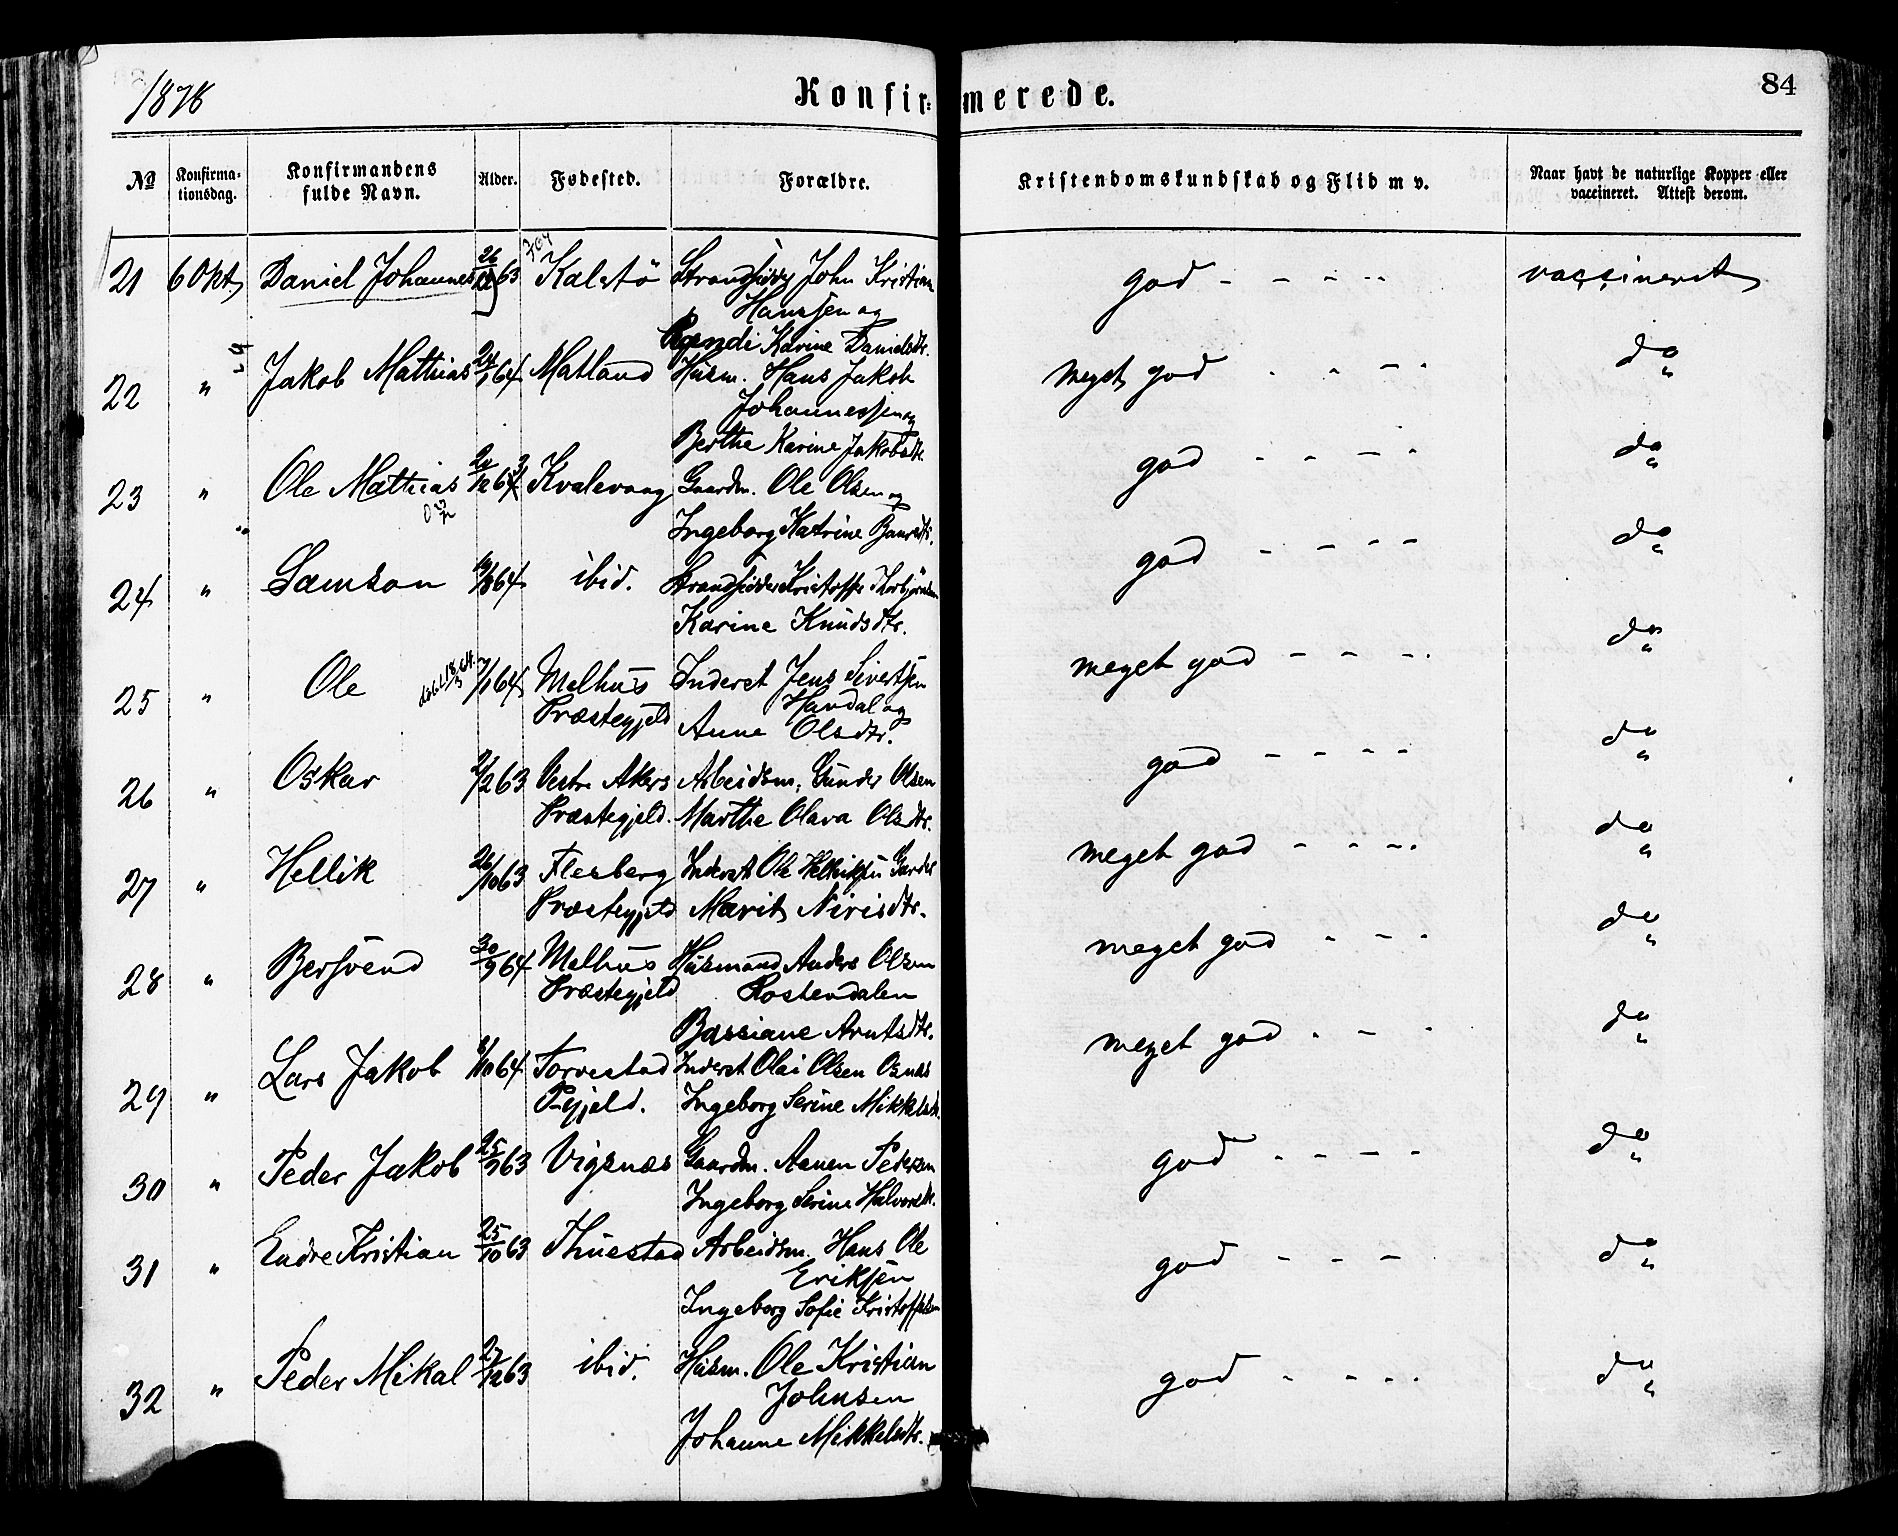 1878
Konfir=merede.
84
No
Konfirma-
tionsdag.
Konfirmandens
fulde Navn.
Alder.
Fødested.
Forældre.
Kristendomskundskab og Flid m v.
Naar havt de naturlige Kopper eller
vaccineret. Attest derom.
21 6 Okt Daniel Johannes 63 Kalstö Strandsidder John Kristian god - - - - vaccineret
Hanssen og
Karine Danielsdtr.
22 " Jakob Mattias 24/1 64 Matland Husm. Hans Jakob meget god - - - - do "
Johannessen og
Berthe Karine Jakobsdtr.
23 " Ole Mattias Kvalevaag Gaardm. Ole Olsen og god - - - - do "
Ingeborg Katrine
24 " Samson 64 ibid. Strandsidder Kristoffer god - - - - do "
Karine Knudsdtr.
25 " Ole 64 Melhus Inderst Jens Sivertsen meget god - - - - do "
Præstegjeld Handal og
Anne Olsdtr.
26 " Oskar 63 Vestre Akers Arbeidsm. Gunder Olsen god - - - - do "
Præstegjeld. Marthe Olava Olsdtr.
27 " Hellik 26/10 63 Flesberg Inderst Ole Helliksen meget god - - - - do "
Præstegjeld Marit Nirisdtr.
28 " Bersvend 30/9 64 Melhus Husmand Anders Olsen meget god - - - do "
Præstegjeld Rostendalen
Arntsdtr.
29 " Lars Jakob 64 Torvestad Inderst Olai Olsen Osnes meget god - - - do "
P.gjeld. Ingeborg Serine Mikkelsdtr.
30 " Peder Jakob 25/9 63 Vigsnæs Gaardm. Aanen Pedersen god - - - - do "
Ingeborg Serine Halvorsdtr.
31 " Endre Kristian 25/10 63 Thuestad Arbeidsm. Hans Ole god - - - do "
Eriksen
Ingeborg Sofie
32 " Peder Mikal 27/12 63 ibid. Husm. Ole Kristian god - - - - do "
Johnsen
Johanne Mikkelsdtr.